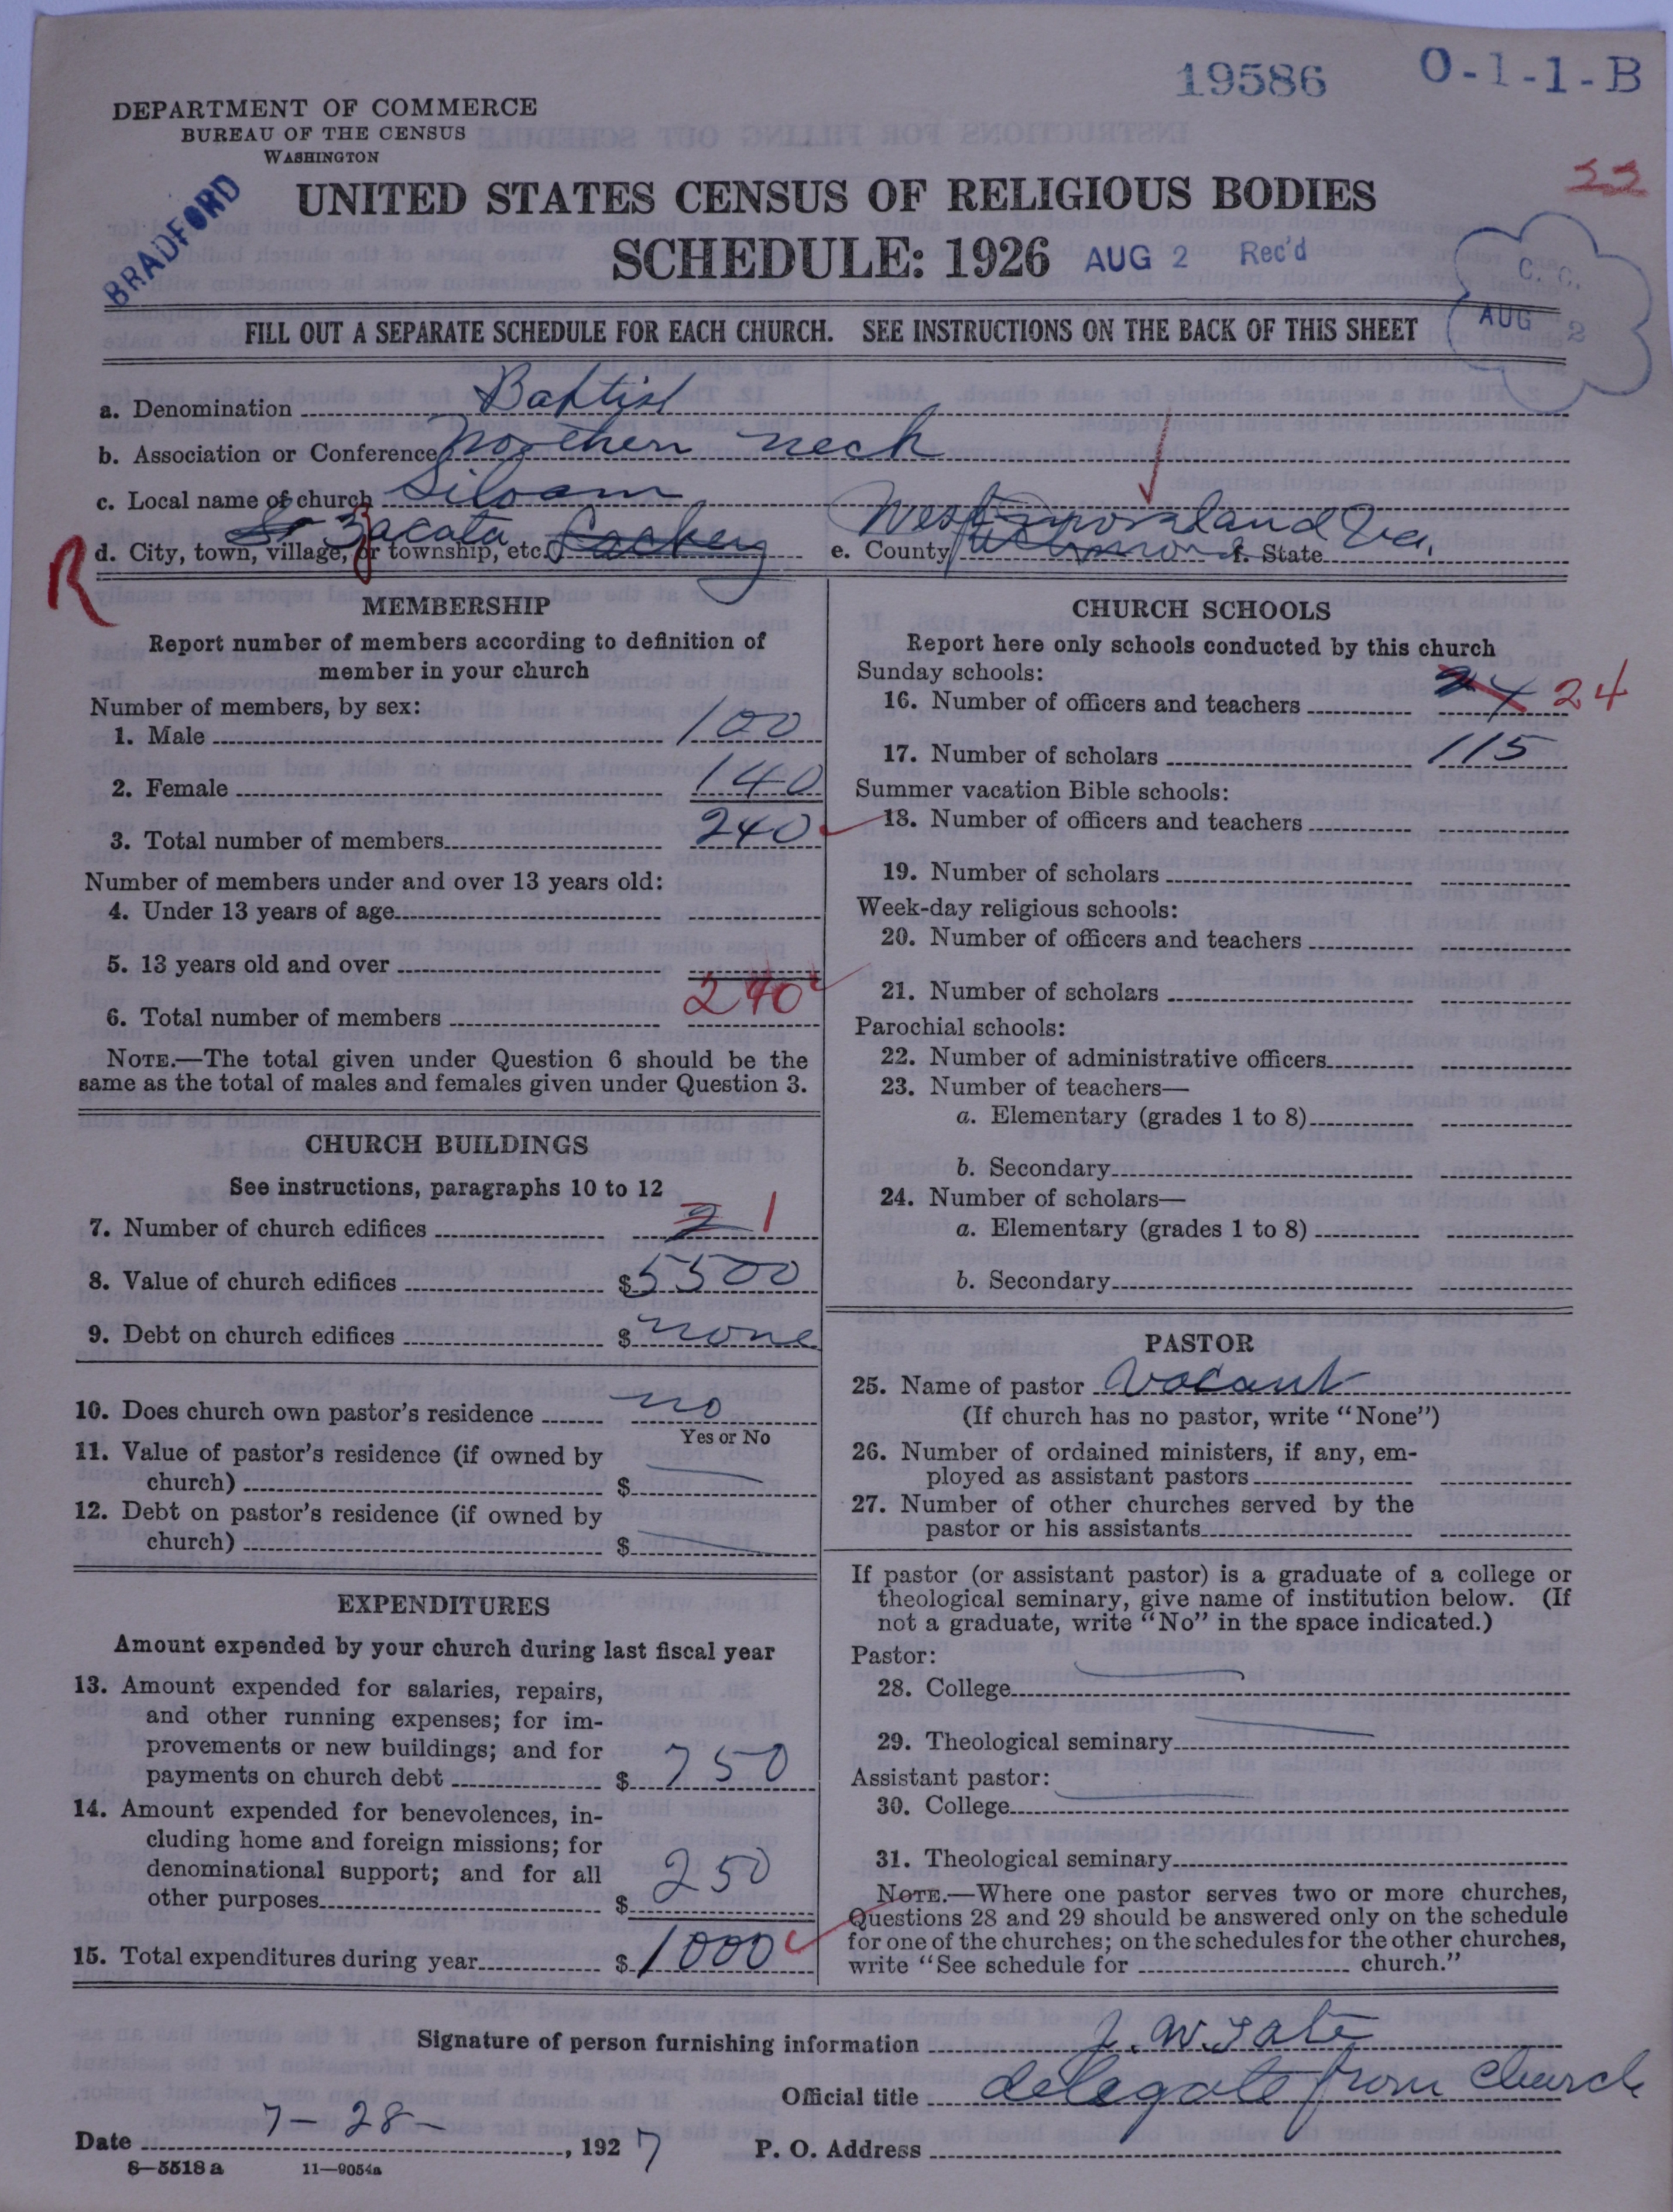 19586 O-1-1-B
DEPARTMENT OF COMMERCE
BUREAU OF THE CENSUS
WASHINGTON
BRADFORD
UNITED STATES CENSUS OF RELIGIOUS BODIES
SCHEDULE: 1926 AUG 2 Rec'd
C. C.
AUG 2
FILL OUT A SEPARATE SCHEDULE FOR EACH CHURCH. SEE INSTRUCTIONS ON THE BACK OF THIS SHEET
a. Denomination Baptist
b. Association or Conference Northern neck
c. Local name of church Siloam
d. City, town, village, or township, etc. Zacata
e. County Westmoreland f. State Va.
R
MEMBERSHIP
Report number of members according to definition of
member in your church
Number of members, by sex:
1. Male 100
2. Female 140
3. Total number of members 240
Number of members under and over 13 years old:
4. Under 13 years of age
5. 13 years old and over
6. Total number of members 240
NOTE.—The total given under Question 6 should be the
same as the total of males and females given under Question 3.
CHURCH BUILDINGS
See instructions, paragraphs 10 to 12
7. Number of church edifices 2 1
8. Value of church edifices $5500
9. Debt on church edifices $none
10. Does church own pastor's residence no
Yes or No
11. Value of pastor's residence (if owned by
church) $
12. Debt on pastor's residence (if owned by
church) $
EXPENDITURES
Amount expended by your church during last fiscal year
13. Amount expended for salaries, repairs,
and other running expenses; for im-
provements or new buildings; and for
payments on church debt $ 750
14. Amount expended for benevolences, in-
cluding home and foreign missions; for
denominational support; and for all
other purposes $ 250
15. Total expenditures during year $ 1000
CHURCH SCHOOLS
Report here only schools conducted by this church
Sunday schools:
16. Number of officers and teachers 24
17. Number of scholars 115
Summer vacation Bible schools:
18. Number of officers and teachers
19. Number of scholars
Week-day religious schools:
20. Number of officers and teachers
21. Number of scholars
Parochial schools:
22. Number of administrative officers
23. Number of teachers—
a. Elementary (grades 1 to 8)
b. Secondary
24. Number of scholars—
a. Elementary (grades 1 to 8)
b. Secondary
PASTOR
25. Name of pastor Vacant
(If church has no pastor, write "None")
26. Number of ordained ministers, if any, em-
ployed as assistant pastors
27. Number of other churches served by the
pastor or his assistants
If pastor (or assistant pastor) is a graduate of a college or
theological seminary, give name of institution below. (If
not a graduate, write "No" in the space indicated.)
Pastor:
28. College
29. Theological seminary
Assistant pastor:
30. College
31. Theological seminary
NOTE.—Where one pastor serves two or more churches,
Questions 28 and 29 should be answered only on the schedule
for one of the churches; on the schedules for the other churches,
write "See schedule for church."
Signature of person furnishing information J. W. Tate
Official title delegate from church
Date 7-28-, 1927 P. O. Address
8—5518 a 11—9054a